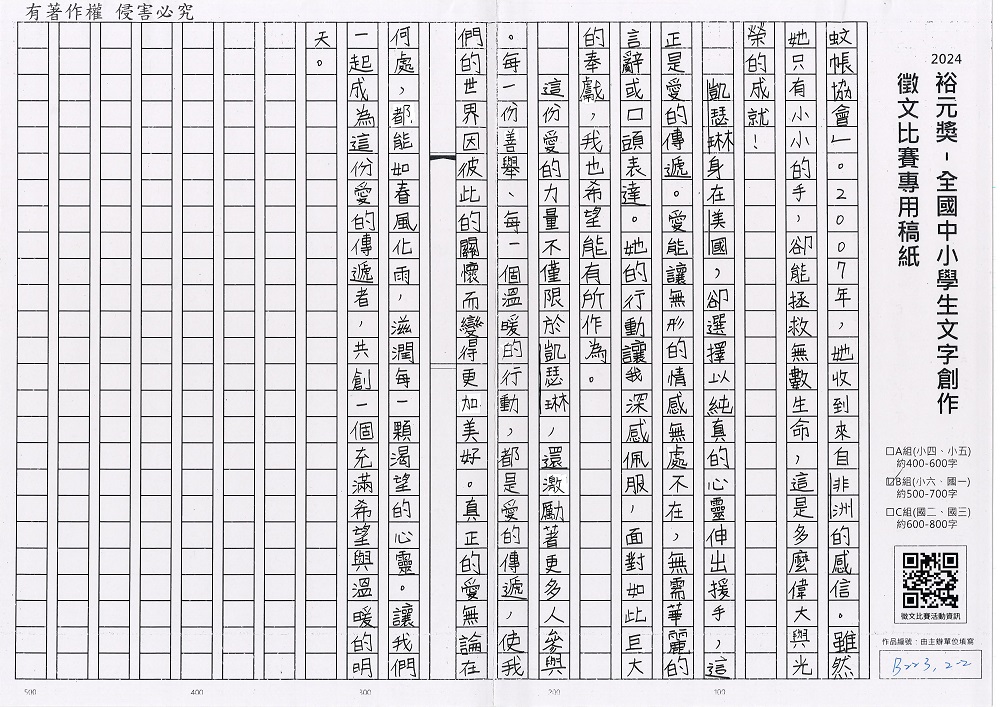 有著作權 侵害必究
2024
裕元獎-全國中小學生文字創作
徵文比賽專用稿紙
□A組(小四、小五)
約400-600字
☑B組(小六、國一)
約500-700字
□C組(國二、國三)
約600-800字
徵文比賽活動資訊
作品編號:由主辦單位填寫
B223,2-2
蚊帳協會」。2007年,她收到來自非洲的感信。雖然
她只有小小的手,卻能拯救無數生命,這是多麼偉大與光
榮的成就!
凱瑟琳身在美國,卻選擇以純真的心靈伸出援手,這
正是愛的傳遞。愛能讓無形的情感無處不在,無需華麗的
言辭或口頭表達。她的行動讓我深感佩服,面對如此巨大
的奉獻,我也希望能有所作為。
這份愛的力量不僅限於凱瑟琳,還激勵著更多人參與
。每一份善舉、每一個溫暖的行動,都是愛的傳遞,使我
們的世界因彼此的關懷而變得更加美好。真正的愛無論在
何處,都能如春風化雨,滋潤每一顆渴望的心靈。讓我們
一起成為這份愛的傳遞者,共創一個充滿希望與溫暖的明
天。
100
200
300
400
500